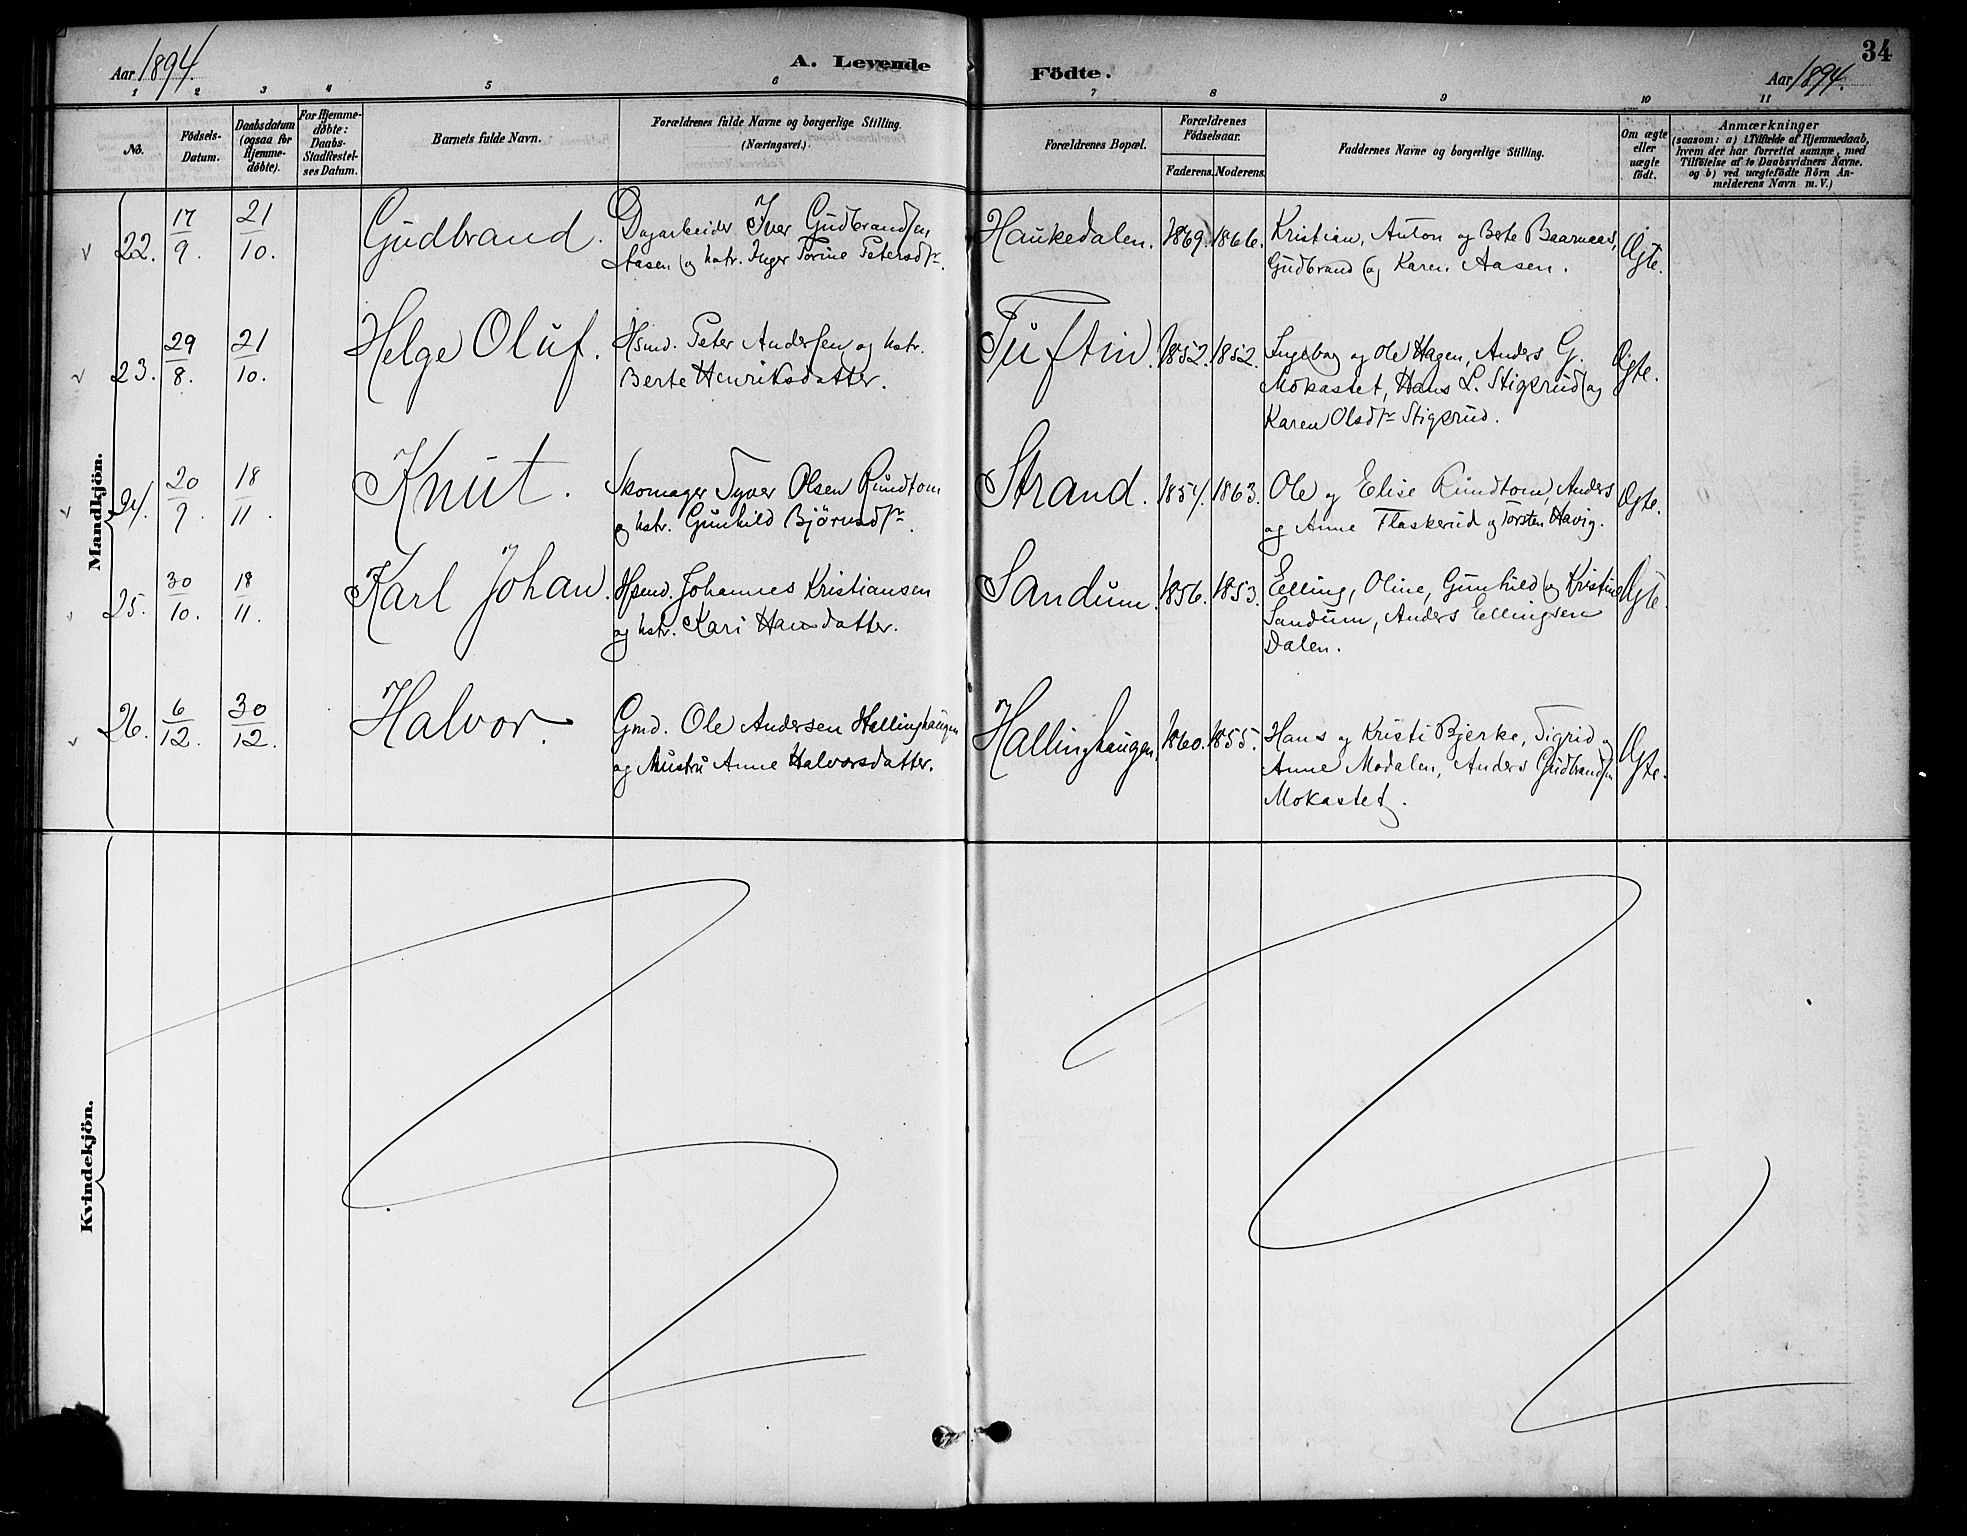 34
Aar 1894. A. Levende Födte. Aar 1894.
1 2 3 4 5 6 7 8 9 10 11
No.
Födsels-Datum.
Daabsdatum (ogsaa for Hjemme-döbte).
For Hjemme-döbte: Daabs-Stadfæstel-ses Datum.
Barnets fulde Navn.
Forældrenes fulde Navne og borgerlige Stilling. (Næringsvei.)
Forældrenes Bopæl.
Forældrenes Födselsaar.
Faderens. Moderens.
Faddernes Navne og borgerlige Stilling.
Om ægte eller uægte födt.
Anmærkninger
(saasom: a) i Tilfælde af Hjemmedaab,
hvem der har forrettet samme, med
Tilföielse af to Daabsvidners Navne.
og b) ved uægtefödte Börn An-
melderens Navn m. V.)
Mandkjön.
22. 17/9. 21/10. Gudbrand. Dagarbeider Iver Gudbrandsen Haukedalen. 1869. 1866. Kristian, Anton og Berte Baarnaas, Ægte.
Aasen og hstr. Inger Torine Petersdtr. Gudbrand og Karen Aasen.
23. 29/8. 21/10. Helge Oluf. Hsmd. Peter Andersen og hstr. Tuftin. 1852. 1852. Ingebog og Ole Hagen, Anders G. Ægte.
Berte Henriksdatter. Mokastet, Hans L. Stigerud og
Karen Olsdtr Stigerud.
24. 20/9. 18/11. Knut. Skomager Syver Olsen Rundtom Strand. 1857. 1863. Ole og Elise Rundtom, Anders Ægte.
og hstr. Gunhild Bjørnsdtr. og Anne Flaskerud og Torsten Havig.
25. 30/10. 18/11. Karl Johan. Hsmd. Johannes Kristiansen Sandum. 1856. 1853. Elling, Oline, Gunhild og Kristine Ægte.
og hstr. Kari Hansdatter. Sandum, Anders Ellingsen
Dalen.
26. 6/12. 30/12. Halvor. Gmd. Ole Andersen Hallinghaugen Hallinghaugen. 1860. 1855. Hans og Kristi Bjerke, Sigrid og Ægte.
og Hustru Anne Halvorsdatter. Anne Modalen, Anders Gudbrandsen
Mokastet.
Kvindekjön.